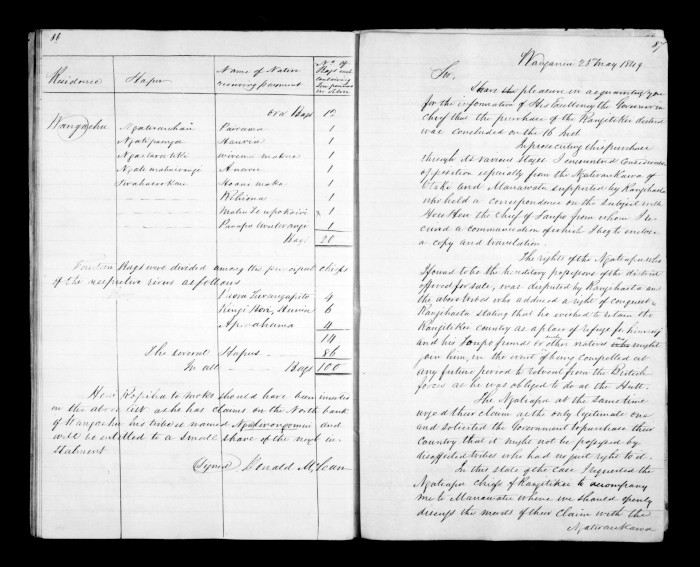 86
Residence Hapu Name of Native receiving payment No. of Bags each containing Ten pounds in Silver
Over Bags 12
Wangaehu Pairama 1
Hauira 1
1
1
Hoani 1
1
1
1
Bags 20
Fourteen Bags were divided among the principal chiefs
of the respective rivers as follows
4
Kingi Hori, 6
Aperahama 4
14
The several Hapus 86
In all Bags 100
Hori Kopiha te moke should have been inserted
on the above list as he has claims on the North bank
of Wangaehu his tribe is named and
will be entitled to a small share of the next in-
stalment
(Signed) Donald McLean
87
Wanganui 25 May 1849
Sir,
I have the pleasure in acquainting you
for the information of His Excellency the Governor in
Chief that the purchase of the Rangitikei district
was concluded on the 16 Inst
In prosecuting this purchase
through its various stages I encountered considerable
opposition especially from the Ngatiraukawa of
Otaki and Manawatu supported by Rangihaeta
who held a correspondence on the subject with
Heu Heu the Chief of Taupo from whom I re-
ceived a communication of which I beg to enclose
a copy and translation.
The rights of the Ngatiapa who
I found to be the hereditary possessors of the district
offered for sale, was disputed by Rangihaeta and
the above tribes who adduced a right of conquest
Rangihaeta stating that he wished to retain the
Rangitikei country as a place of refuge for himself
and his Taupo friends or other natives who might
join him, in the event of being compelled at
any future period to retreat from the British
forces as he was obliged to do at the Hutt.
The Ngatiapa at the same time
urged their claim as the only legitimate one
and solicited the Government to purchase their
Country that it might not be possessed by
disaffected tribes who had no just right to it.
In this state of the case I requested the
Ngatiapa chiefs of Rangitikei to accompany
me to Manawatu where we should openly
discuss the merits of their Claim with the
Ngatiraukawa